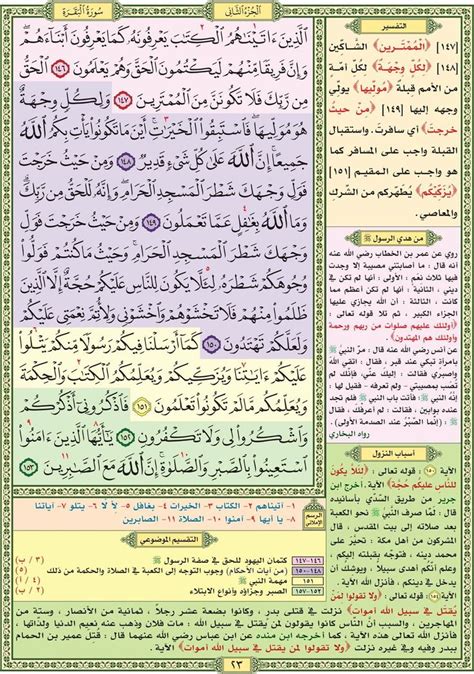 سُورَةُ البَقَرَة
الجُزءُ الثَّانِي
ٱلَّذِينَ ءَاتَيْنَٰهُمُ ٱلْكِتَٰبَ يَعْرِفُونَهُۥ كَمَا يَعْرِفُونَ أَبْنَآءَهُمْ
وَإِنَّ فَرِيقًا مِّنْهُمْ لَيَكْتُمُونَ ٱلْحَقَّ وَهُمْ يَعْلَمُونَ ١٤٦ ٱلْحَقُّ
مِن رَّبِّكَ فَلَا تَكُونَنَّ مِنَ ٱلْمُمْتَرِينَ ١٤٧ وَلِكُلٍّ وِجْهَةٌ
هُوَ مُوَلِّيهَا فَٱسْتَبِقُوا۟ ٱلْخَيْرَٰتِ أَيْنَ مَا تَكُونُوا۟ يَأْتِ بِكُمُ ٱللَّهُ
جَمِيعًا إِنَّ ٱللَّهَ عَلَىٰ كُلِّ شَىْءٍ قَدِيرٌ ١٤٨ وَمِنْ حَيْثُ خَرَجْتَ
فَوَلِّ وَجْهَكَ شَطْرَ ٱلْمَسْجِدِ ٱلْحَرَامِ وَإِنَّهُۥ لَلْحَقُّ مِن رَّبِّكَ
وَمَا ٱللَّهُ بِغَٰفِلٍ عَمَّا تَعْمَلُونَ ١٤٩ وَمِنْ حَيْثُ خَرَجْتَ
فَوَلِّ وَجْهَكَ شَطْرَ ٱلْمَسْجِدِ ٱلْحَرَامِ وَحَيْثُ مَا كُنتُمْ فَوَلُّوا۟
وُجُوهَكُمْ شَطْرَهُۥ لِئَلَّا يَكُونَ لِلنَّاسِ عَلَيْكُمْ حُجَّةٌ إِلَّا ٱلَّذِينَ
ظَلَمُوا۟ مِنْهُمْ فَلَا تَخْشَوْهُمْ وَٱخْشَوْنِى وَلِأُتِمَّ نِعْمَتِى عَلَيْكُمْ
وَلَعَلَّكُمْ تَهْتَدُونَ ١٥٠ كَمَآ أَرْسَلْنَا فِيكُمْ رَسُولًا مِّنكُمْ يَتْلُوا۟
عَلَيْكُمْ ءَايَٰتِنَا وَيُزَكِّيكُمْ وَيُعَلِّمُكُمُ ٱلْكِتَٰبَ وَٱلْحِكْمَةَ
وَيُعَلِّمُكُم مَّا لَمْ تَكُونُوا۟ تَعْلَمُونَ ١٥١ فَٱذْكُرُونِىٓ أَذْكُرْكُمْ
وَٱشْكُرُوا۟ لِى وَلَا تَكْفُرُونِ ١٥٢ يَٰٓأَيُّهَا ٱلَّذِينَ ءَامَنُوا۟
ٱسْتَعِينُوا۟ بِٱلصَّبْرِ وَٱلصَّلَوٰةِ إِنَّ ٱللَّهَ مَعَ ٱلصَّٰبِرِينَ ١٥٣
التفسير
[١٤٧] ﴿الْمُمْتَرِينَ﴾ الشاكّين
[١٤٨] ﴿لِكُلٍّ وِجْهَةٌ﴾ لكلّ أمّة
قبلة واحدة ﴿مُوَلِّيهَا﴾ يولّي
وجهه إليها [١٤٩] ﴿مِنْ حَيْثُ
خَرَجْتَ﴾ أي سافرت. واستقبال
القبلة واجب على المسافر كما
هو واجب على المقيم [١٥١]
﴿يُزَكِّيكُمْ﴾ يُطهّركم من الشّرك
والمعاصي.
من هدي الرسول ﷺ
روي عن عمر بن الخطاب رضي الله عنه
أنه قال : ما أصابتني مصيبة إلا وجدت
فيها ثلاث نعم : الأولى : أنها لم تكن في
ديني ، الثانية : أنها لم تكن أعظم مما
كانت ، الثالثة : أن الله يجازي عليها
﴿أولئك عليهم صلوات من ربهم ورحمة
وأولئك هم المهتدون﴾
عن أنس رضي الله عنه قال : مر النبيّ ﷺ
بامرأة تبكي عند قبر ، فقال : اتقي الله
واصبري
(إنما الصّبْرُ عند الصدمة الأولى)
رواه البخاري
أسباب النزول
الآية ١٥٠ : قوله تعالى : ﴿لئلا يكون
للناس عليكم حجة﴾ الآية ، أخرج ابن
جرير من طريق السّدّي بأسانيده قال :
لما صُرف النبيّ ﷺ نحو الكعبة
بعد صلاته إلى بيت المقدس ، قال
المشركون من أهل مكة : تحيّر على
محمد دينه ، فتوجه بقبلته إليكم ،
وعلم أنكم أهدى منه سبيلا ، ويوشك أن
يدخل في دينكم ، فأنزل الله الآية .
الآية ١٥٤ : قوله تعالى : ﴿ولا تقولوا لمن
يقتل في سبيل الله أموات﴾ نزلت في قتلى بدر ، وكانوا بضعة عشر رجلاً ، ثمانية من الأنصار ، وستة من
المهاجرين ، والسبب أن الناس كانوا يقولون لمن يقتل في سبيل الله : مات فلان وذهب عنه نعيم الدنيا ولذتها ،
فأنزل الله تعالى هذه الآية ، كما أخرجه ابن منده عن ابن عباس رضي الله عنهما قال : قتل عمرو بن الحمام
ببدر وفيه وفي غيره نزلت ﴿ولا تقولوا لمن يقتل في سبيل الله أموات﴾ الآية .
الرسم الإملائي
١- آتيناهم ٢- الكتاب ٣- الخيرات ٤- بغافل ٥- لأن لا ٦- يتلو ٧- آياتنا
٨- يا أيها ٩- آمنوا ١٠- الصلاة ١١- الصابرين
التقسيم الموضوعي
١٤٦-١٤٧ كتمان اليهود للحق في صفة الرسول ﷺ (٣ / ب)
١٤٨-١٥٠ (من آيات الأحكام) وجوب التوجه إلى الكعبة في الصلاة والحكمة من ذلك
١٥١ مهمة النبيّ ﷺ
١٥٢-١٥٧ الصبر وجزاؤه وأنواع الابتلاء
٢٣